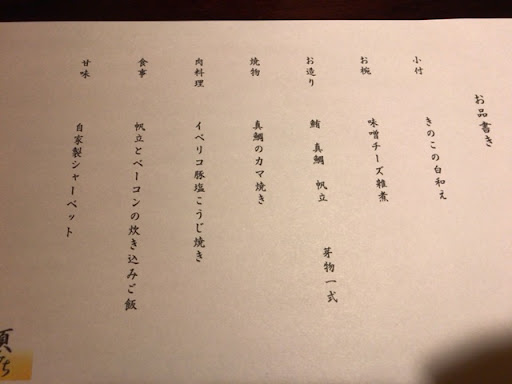 お品書き
小付
きのこの白和え
お椀
味噌チーズ雑煮
お造り
鮪 真鯛 帆立 芽物一式
焼物
真鯛のカマ焼き
肉料理
イベリコ豚塩こうじ焼き
食事
帆立とベーコンの炊き込みご飯
甘味
自家製シャーベット